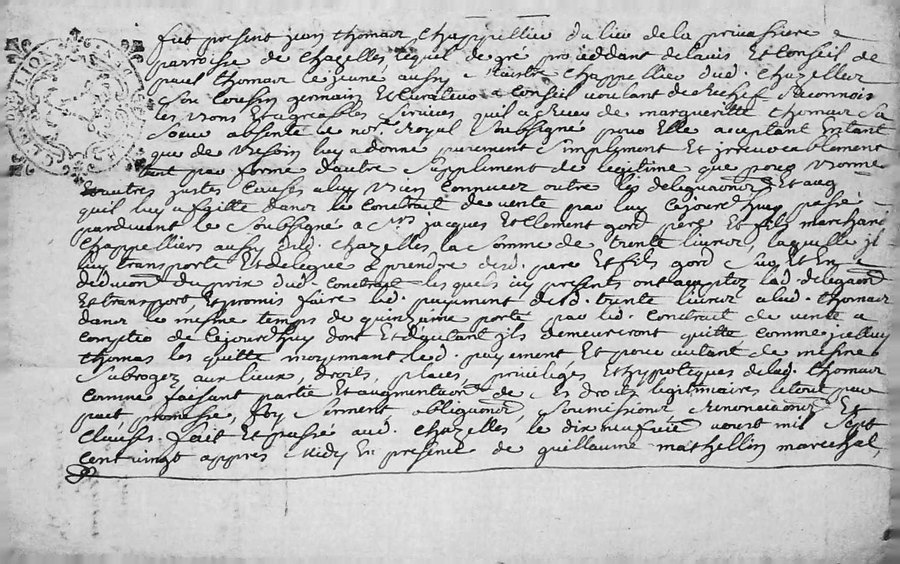 fut present jean thomas chappellier du lieu de la priuassiere
parroisse de chazelles lequel de gré proceddant de lauis Et Conseil de
thomas le jeune aussy maistre chappellier dud. chazelles
son Cousin germain Et Curateur a Conseil voulant de Rechef Reconnoistre
les bons Et agreables seruices quil a Receu de margueritte thomas sa
soeur absente le no.re Royal soubsigné pour Elle aceptant Entant
que de besoin luy a donné purement simplement Et jrreuocablement
tant par forme dautre supplement de legitime que pour bonne
Et autres justes Causes a luy bien connues outre les delegaons Et
quil luy a faitte dans le contrait de vente par luy cejourdhuy passé
pardeuant le soubsigné a Srs jacques Et Clement gord pere Et fils marchand
chappelliers aussy dud. chazelles la somme de trente liures laquelle jl
luy transporte Et delegue a prendre desd. pere Et fils gord sur Et En
deduction du prix dud. contrait lesquels icy presents ont acceptez lad. delegaon
Et transport, Et promis faire led. payement desd. trente liures a lad. thomas
dans le mesme temps de quinzaine porté par led. contrait de vente a
compter de cejourdhuy dont Et dequitant jls demeureront quitte comme jcelluy
thomas les quitte moyennant led. payement Et pour autant de mesme
subrogez aux lieux, droits, places, priuileges Et hypoteques de lad. thomas
comme faisant partie Et augmentaon de ses droits legitimaires le tout par
pact promesse, foy, serment obligaons soumissions Renonciaons Et
Clauses. fait Et passé aud. chazelles le dixneufuie aoust mil sept
cent vingt appres midy En presence de guillaume mathellin mareschal